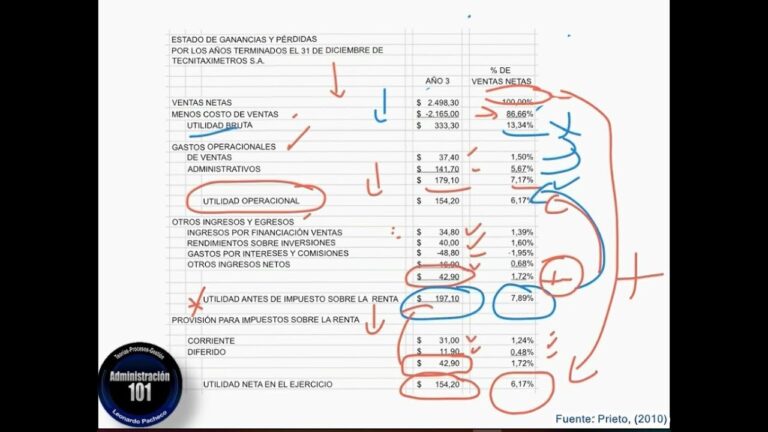 ESTADO DE GANANCIAS Y PÉRDIDAS
POR LOS AÑOS TERMINADOS EL 31 DE DICIEMBRE DE
TECNITAXIMETROS S.A.
AÑO 3 % DE VENTAS NETAS
VENTAS NETAS $ 2.498,30 100,00%
MENOS COSTO DE VENTAS $ -2.165,00 86,66%
UTILIDAD BRUTA $ 333,30 13,34%
GASTOS OPERACIONALES
DE VENTAS $ 37,40 1,50%
ADMINISTRATIVOS $ 141,70 5,67%
$ 179,10 7,17%
UTILIDAD OPERACIONAL $ 154,20 6,17%
OTROS INGRESOS Y EGRESOS
INGRESOS POR FINANCIACIÓN VENTAS $ 34,80 1,39%
RENDIMIENTOS SOBRE INVERSIONES $ 40,00 1,60%
GASTOS POR INTERESES Y COMISIONES $ -48,80 -1,95%
OTROS INGRESOS NETOS $ 0,68%
$ 42,90 1,72%
UTILIDAD ANTES DE IMPUESTO SOBRE LA RENTA $ 197,10 7,89%
PROVISIÓN PARA IMPUESTOS SOBRE LA RENTA
CORRIENTE $ 31,00 1,24%
DIFERIDO $ 11,90 0,48%
$ 42,90 1,72%
UTILIDAD NETA EN EL EJERCICIO $ 154,20 6,17%
Teorías-Procesos-Gestión
Administración
101
Leonardo Pacheco
Fuente: Prieto, (2010)